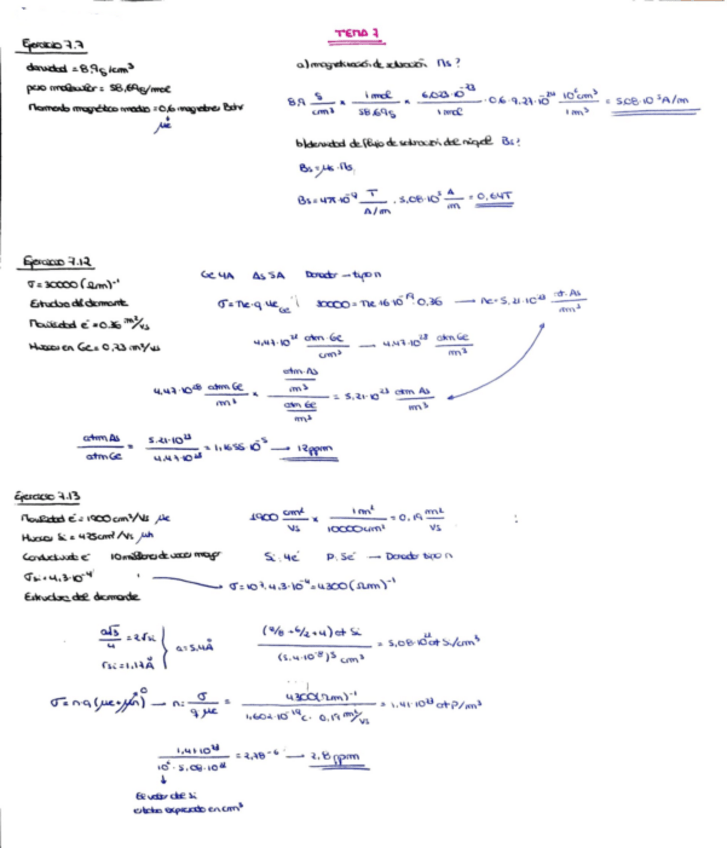 TEMA 7
Ejercicio 7.7
densidad = 8,9 g/cm³
peso molecular = 58,69 g/mol
Momento magnético medio = 0,6 magnetones Bohr
a) magnetización de saturación Ms?
8,9 g/cm³ × 1 mol/58,69g × 6,023·10⁻²³/1 mol · 0,6·9,27·10⁻²⁴ 10⁶cm³/1 m³ = 5,08·10⁵ A/m
b) densidad de flujo de saturación del níquel Bs?
Bs = μo·Ms
Bs = 4π·10⁻⁷ T/A/m · 5,08·10⁵ A/m = 0,64T
Ejercicio 7.12
σ = 30000 (Ωm)⁻¹
Estructura del diamante
Movilidad e⁻ = 0,36 m²/vs
Huecos en Ge = 0,23 m²/vs
Ge 4A As 5A Donador – tipo n
σ = ne·q·μe Ge ; 30000 = ne·1,6·10⁻¹⁹·0,36 → ne = 5,21·10²³ at. As/m³
4,47·10²² atm Ge/cm³ → 4,47·10²⁸ atm Ge/m³
4,47·10²⁸ atm Ge/m³ × atm As/m³ / atm Ge/m³ = 5,21·10²³ atm As/m³
atm As/atm Ge = 5,21·10²³/4,47·10²⁸ = 1,1655·10⁻⁵ → 12 ppm
Ejercicio 7.13
Movilidad e⁻ = 1900 cm²/Vs μe
Huecos Si = 425 cm²/Vs μh
Conductividad e⁻ 10 millones de veces mayor
σsi = 4,3·10⁻⁴
Estructura del diamante
1900 cm²/vs × 1 m²/10000 cm² = 0,19 m²/vs
Si: 4e⁻ P: 5e⁻ → Donador tipo n
σ = 10⁷·4,3·10⁻⁴ = 4300 (Ωm)⁻¹
a√3/4 = 2rsi
rsi = 1,17Å
a = 5,4Å
(8/8 + 6/2 + 4) at Si / (5,4·10⁻⁸)³ cm³ = 5,08·10²² at Si/cm³
σ = n·q(μe + μh) → n: σ/q μe = 4300 (Ωm)⁻¹ / 1,602·10⁻¹⁹c · 0,19 m²/vs = 1,41·10²³ at P/m³
1,41·10²³ / 10⁶·5,08·10²² = 2,78⁻⁶ → 2,8 ppm
El valor del Si
estaba expresado en cm³